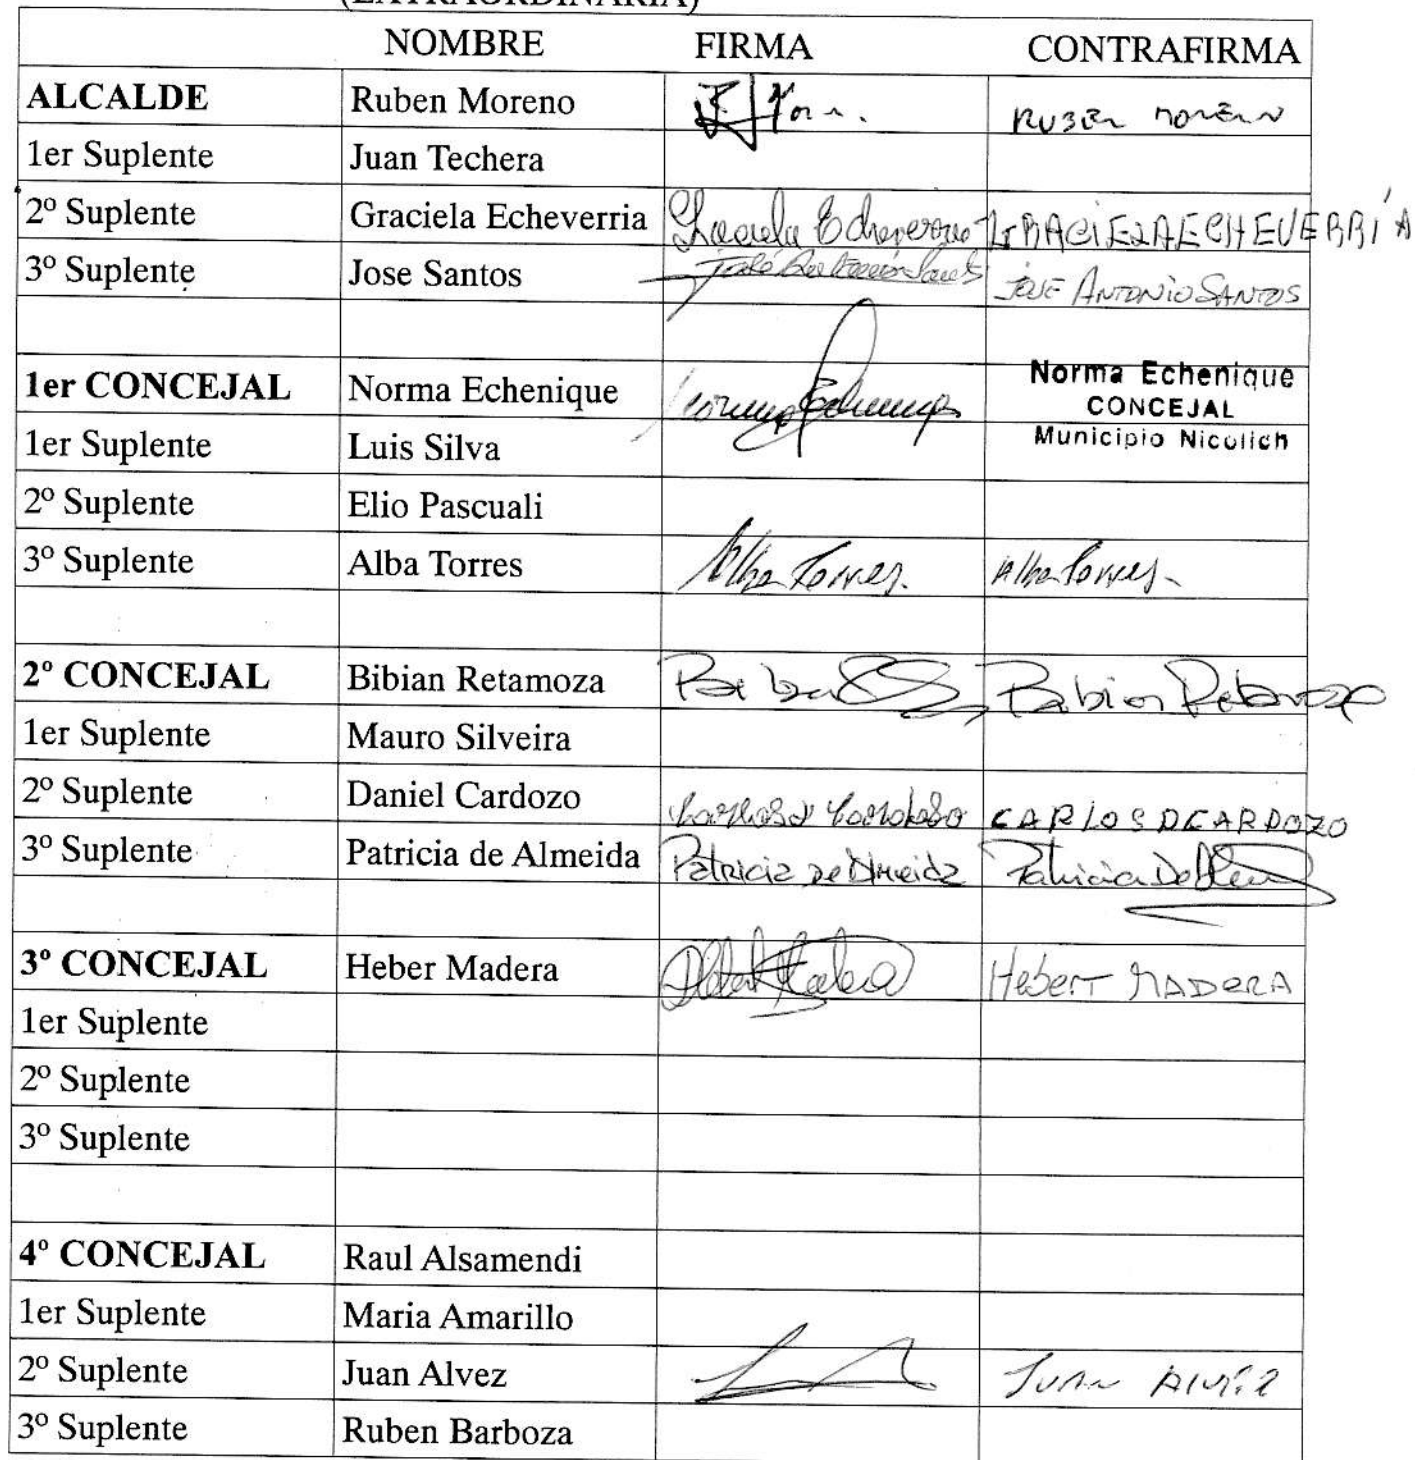 (EXTRAORDINARIA)
NOMBRE FIRMA CONTRAFIRMA
ALCALDE Ruben Moreno RUBEN MORENO
1er Suplente Juan Techera
2º Suplente Graciela Echeverria Graciela Echeverria GRACIELA ECHEVERRÍA
3º Suplente Jose Santos José Antonio Santos JOSE ANTONIO SANTOS
1er CONCEJAL Norma Echenique Norma Echenique
CONCEJAL
1er Suplente Luis Silva Municipio Nicolich
2º Suplente Elio Pascuali
3º Suplente Alba Torres Alba Torres. Alba Torres
2º CONCEJAL Bibian Retamoza Bibian Retamoza
1er Suplente Mauro Silveira
2º Suplente Daniel Cardozo CARLOS D CARDOZO
3º Suplente Patricia de Almeida Patricia De Almeida Patricia De
3º CONCEJAL Heber Madera Hebert MADERA
1er Suplente
2º Suplente
3º Suplente
4º CONCEJAL Raul Alsamendi
1er Suplente Maria Amarillo
2º Suplente Juan Alvez JUAN ALVEZ
3º Suplente Ruben Barboza